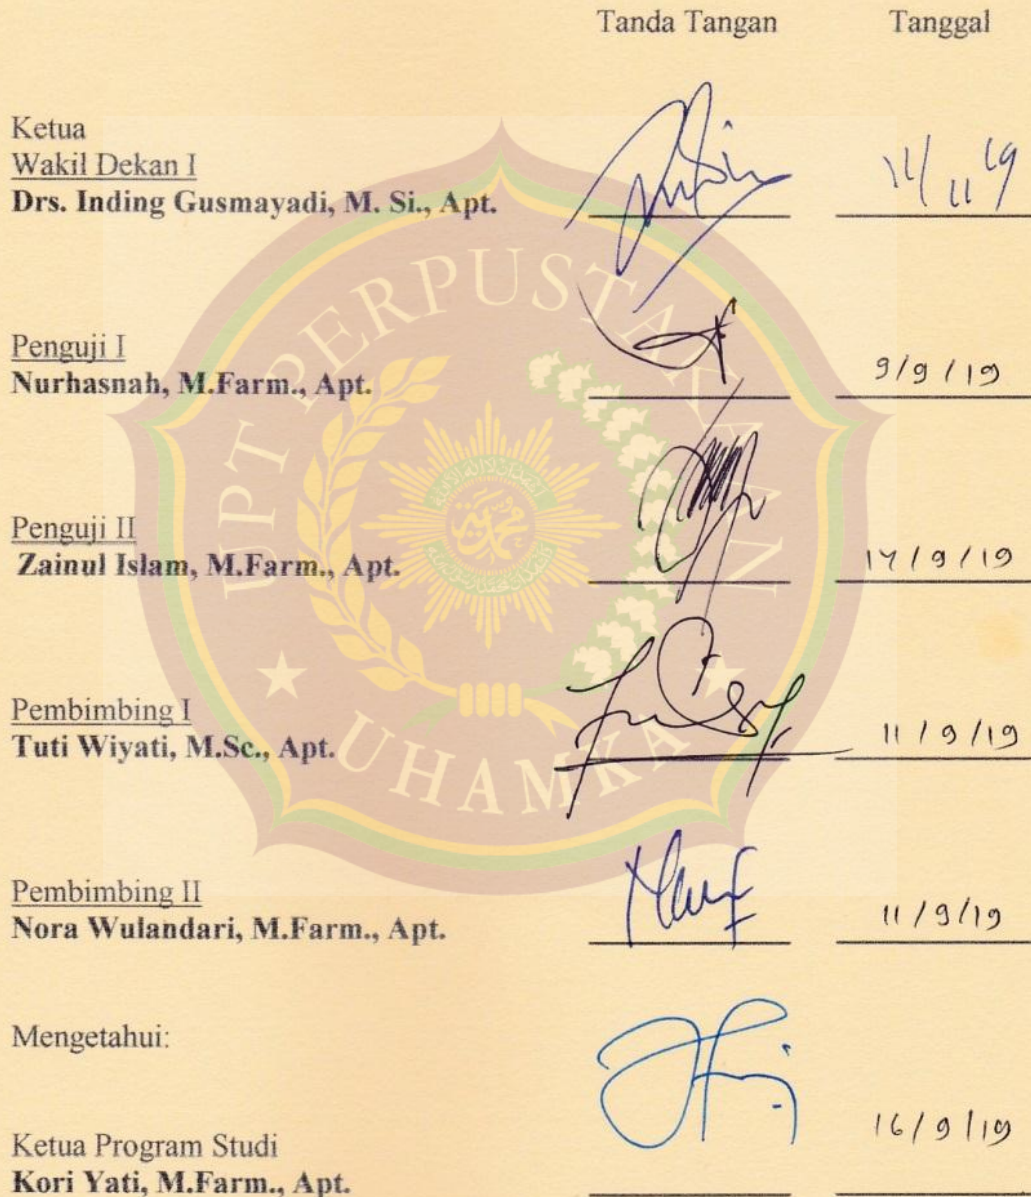 Tanda Tangan Tanggal
Ketua
Wakil Dekan I
Drs. Inding Gusmayadi, M. Si., Apt.
11/ 11 19
Penguji I
Nurhasnah, M.Farm., Apt. 9/9/19
Penguji II
Zainul Islam, M.Farm., Apt. 14/9/19
Pembimbing I
Tuti Wiyati, M.Sc., Apt. 11/9/19
Pembimbing II
Nora Wulandari, M.Farm., Apt. 11/9/19
Mengetahui:
Ketua Program Studi 16/9/19
Kori Yati, M.Farm., Apt.
UPT PERPUSTAKAAN
UHAMKA